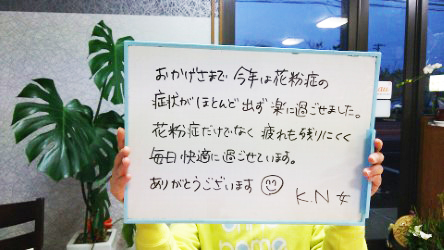 おかげさまで 今年は花粉症の
症状がほとんど出ず 楽に過ごせました。
花粉症だけでなく 疲れも残りにくく
毎日快適に過ごせています。
ありがとうございます
K.N 女